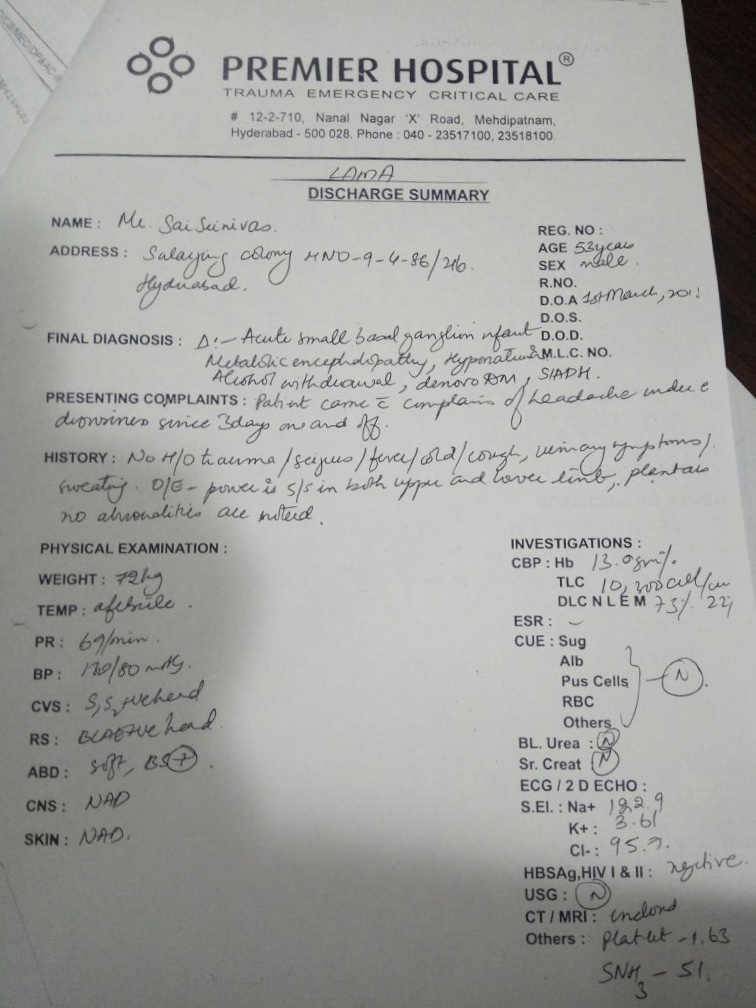 PREMIER HOSPITAL®
TRAUMA EMERGENCY CRITICAL CARE
# 12-2-710, Nanal Nagar 'X' Road, Mehdipatnam,
Hyderabad - 500 028. Phone : 040 - 23517100, 23518100.
LAMA
DISCHARGE SUMMARY
NAME : Mr. Sai Srinivas.
ADDRESS : colony HNO-9-4-86/
Hyderabad.
REG. NO :
AGE 53years
SEX male.
R.NO.
D.O.A 1st March,
D.O.S.
D.O.D.
M.L.C. NO.
FINAL DIAGNOSIS : Δ:- Acute small basal ganglion infarct
Metabolic encephalopathy,
Alcohol withdrawal, denovo DM, SIADH.
PRESENTING COMPLAINTS : Patient came c̄ complains of headache
drowsiness since 3days on and off.
HISTORY : No H/O trauma/ /fever/cold/cough, urinary symptoms/
sweating. O/E - power is 5/5 in both upper and lower limb, plantars
no are noted.
PHYSICAL EXAMINATION :
WEIGHT : 72kg
TEMP : afebrile.
PR : 69/min.
BP : /80 mmHg.
CVS : S1S2 +ve heard
RS : BLAE+ve heard
ABD : soft, BS+
CNS : NAD
SKIN : NAD.
INVESTIGATIONS :
CBP : Hb 13.0gm%
TLC
DLC N L E M 73%
ESR :
CUE : Sug
Alb
Pus Cells N
RBC
Others
BL. Urea : N
Sr. Creat N
ECG / 2 D ECHO :
S.El. : Na+
K+ : 3.61
Cl- : 95.
HBSAg,HIV I & II : negative.
USG : N
CT / MRI :
Others : Platlet - 1.63
SNH3 - 51.